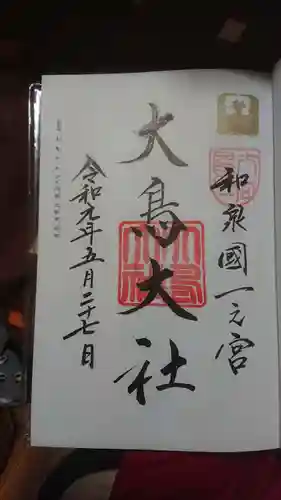 和泉國一之宮
大鳥大社
令和元年五月二十七日